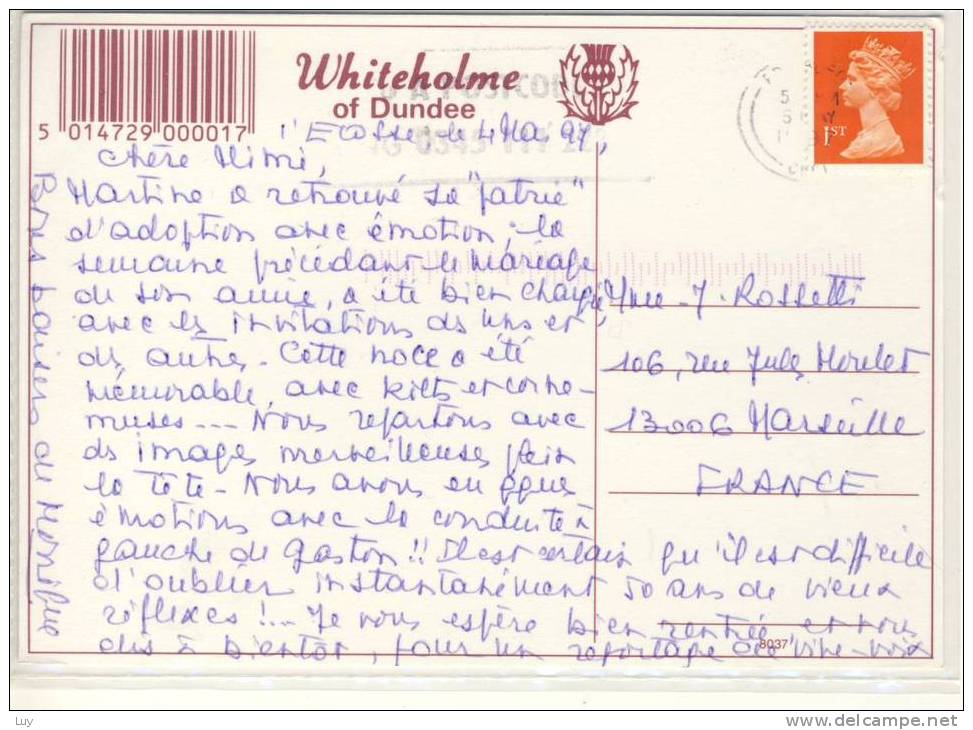 Whiteholme
of Dundee
5 014729 000017
l'Ecosse le 4 Mai 97,
1ST
Chère Mimi,
Martine a retrouvé sa "patrie"
d'adoption avec émotion; la
semaine précédant le mariage
de son amie, a été bien chargée,
avec les invitations des uns et
des autres. Cette noce a été
mémorable, avec kilts et corne-
muses... Nous repartons avec
des images merveilleuses plein
la tête. Nous avons eu qques
émotions avec la conduite à
gauche de Gaston!! Il est certain qu'il est difficile
d'oublier instantanément 50 ans de vieux
réflexes!... Je vous espère bien rentrée, et vous
dis à bientôt, pour un reportage de vive-voix
Bons baisers de Monique
Mme J. Rossetti
106, rue Jules Moulet
13006 Marseille
FRANCE
8037
Luy
www.delcampe.net